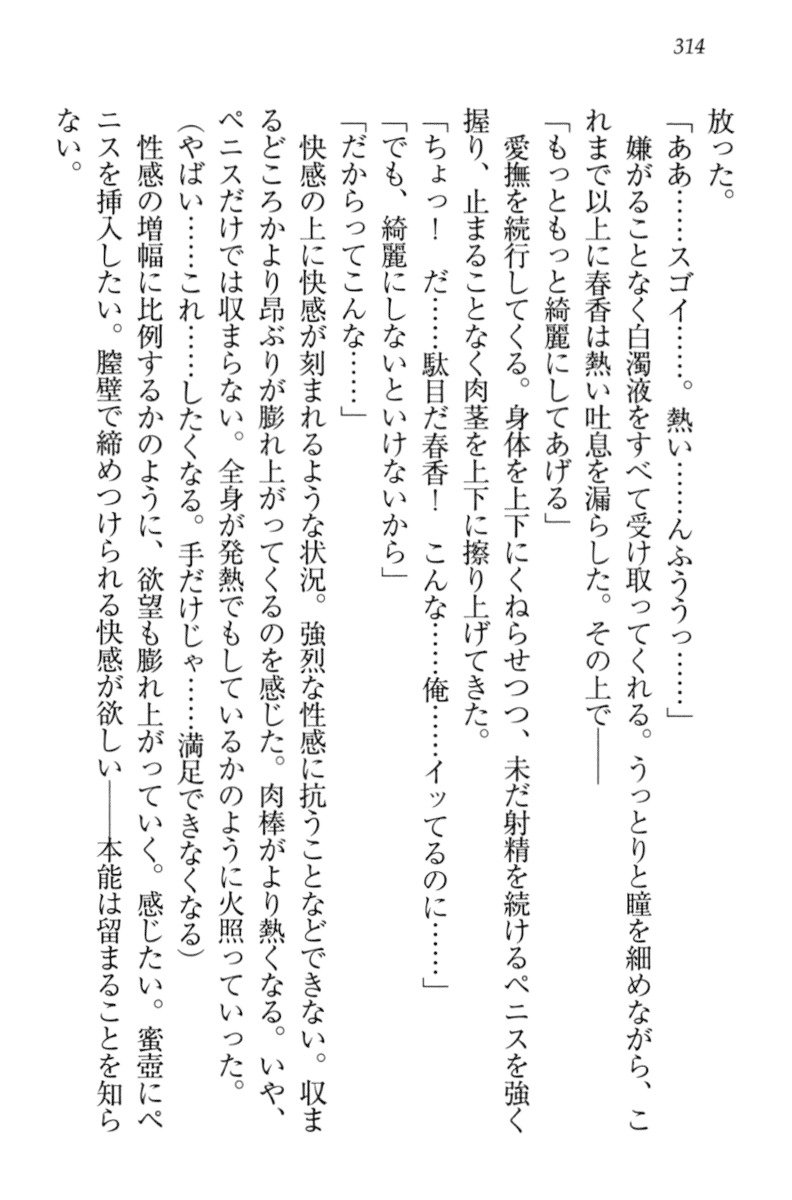 314
放った。
「ああ……スゴイ……。熱い……んふううっ……」
　嫌がることなく白濁液をすべて受け取ってくれる。うっとりと瞳を細めながら、こ
れまで以上に春香は熱い吐息を漏らした。その上で――
「もっともっと綺麗にしてあげる」
　愛撫を続行してくる。身体を上下にくねらせつつ、未だ射精を続けるペニスを強く
握り、止まることなく肉茎を上下に擦り上げてきた。
「ちょっ！　だ……駄目だ春香！　こんな……俺……イッてるのに……」
「でも、綺麗にしないといけないから」
「だからってこんな……」
　快感の上に快感が刻まれるような状況。強烈な性感に抗うことなどできない。収ま
るどころかより昂ぶりが膨れ上がってくるのを感じた。肉棒がより熱くなる。いや、
ペニスだけでは収まらない。全身が発熱でもしているかのように火照っていった。
（やばい……これ……したくなる。手だけじゃ……満足できなくなる）
　性感の増幅に比例するかのように、欲望も膨れ上がっていく。感じたい。蜜壺にペ
ニスを挿入したい。膣壁で締めつけられる快感が欲しい――本能は留まることを知ら
ない。